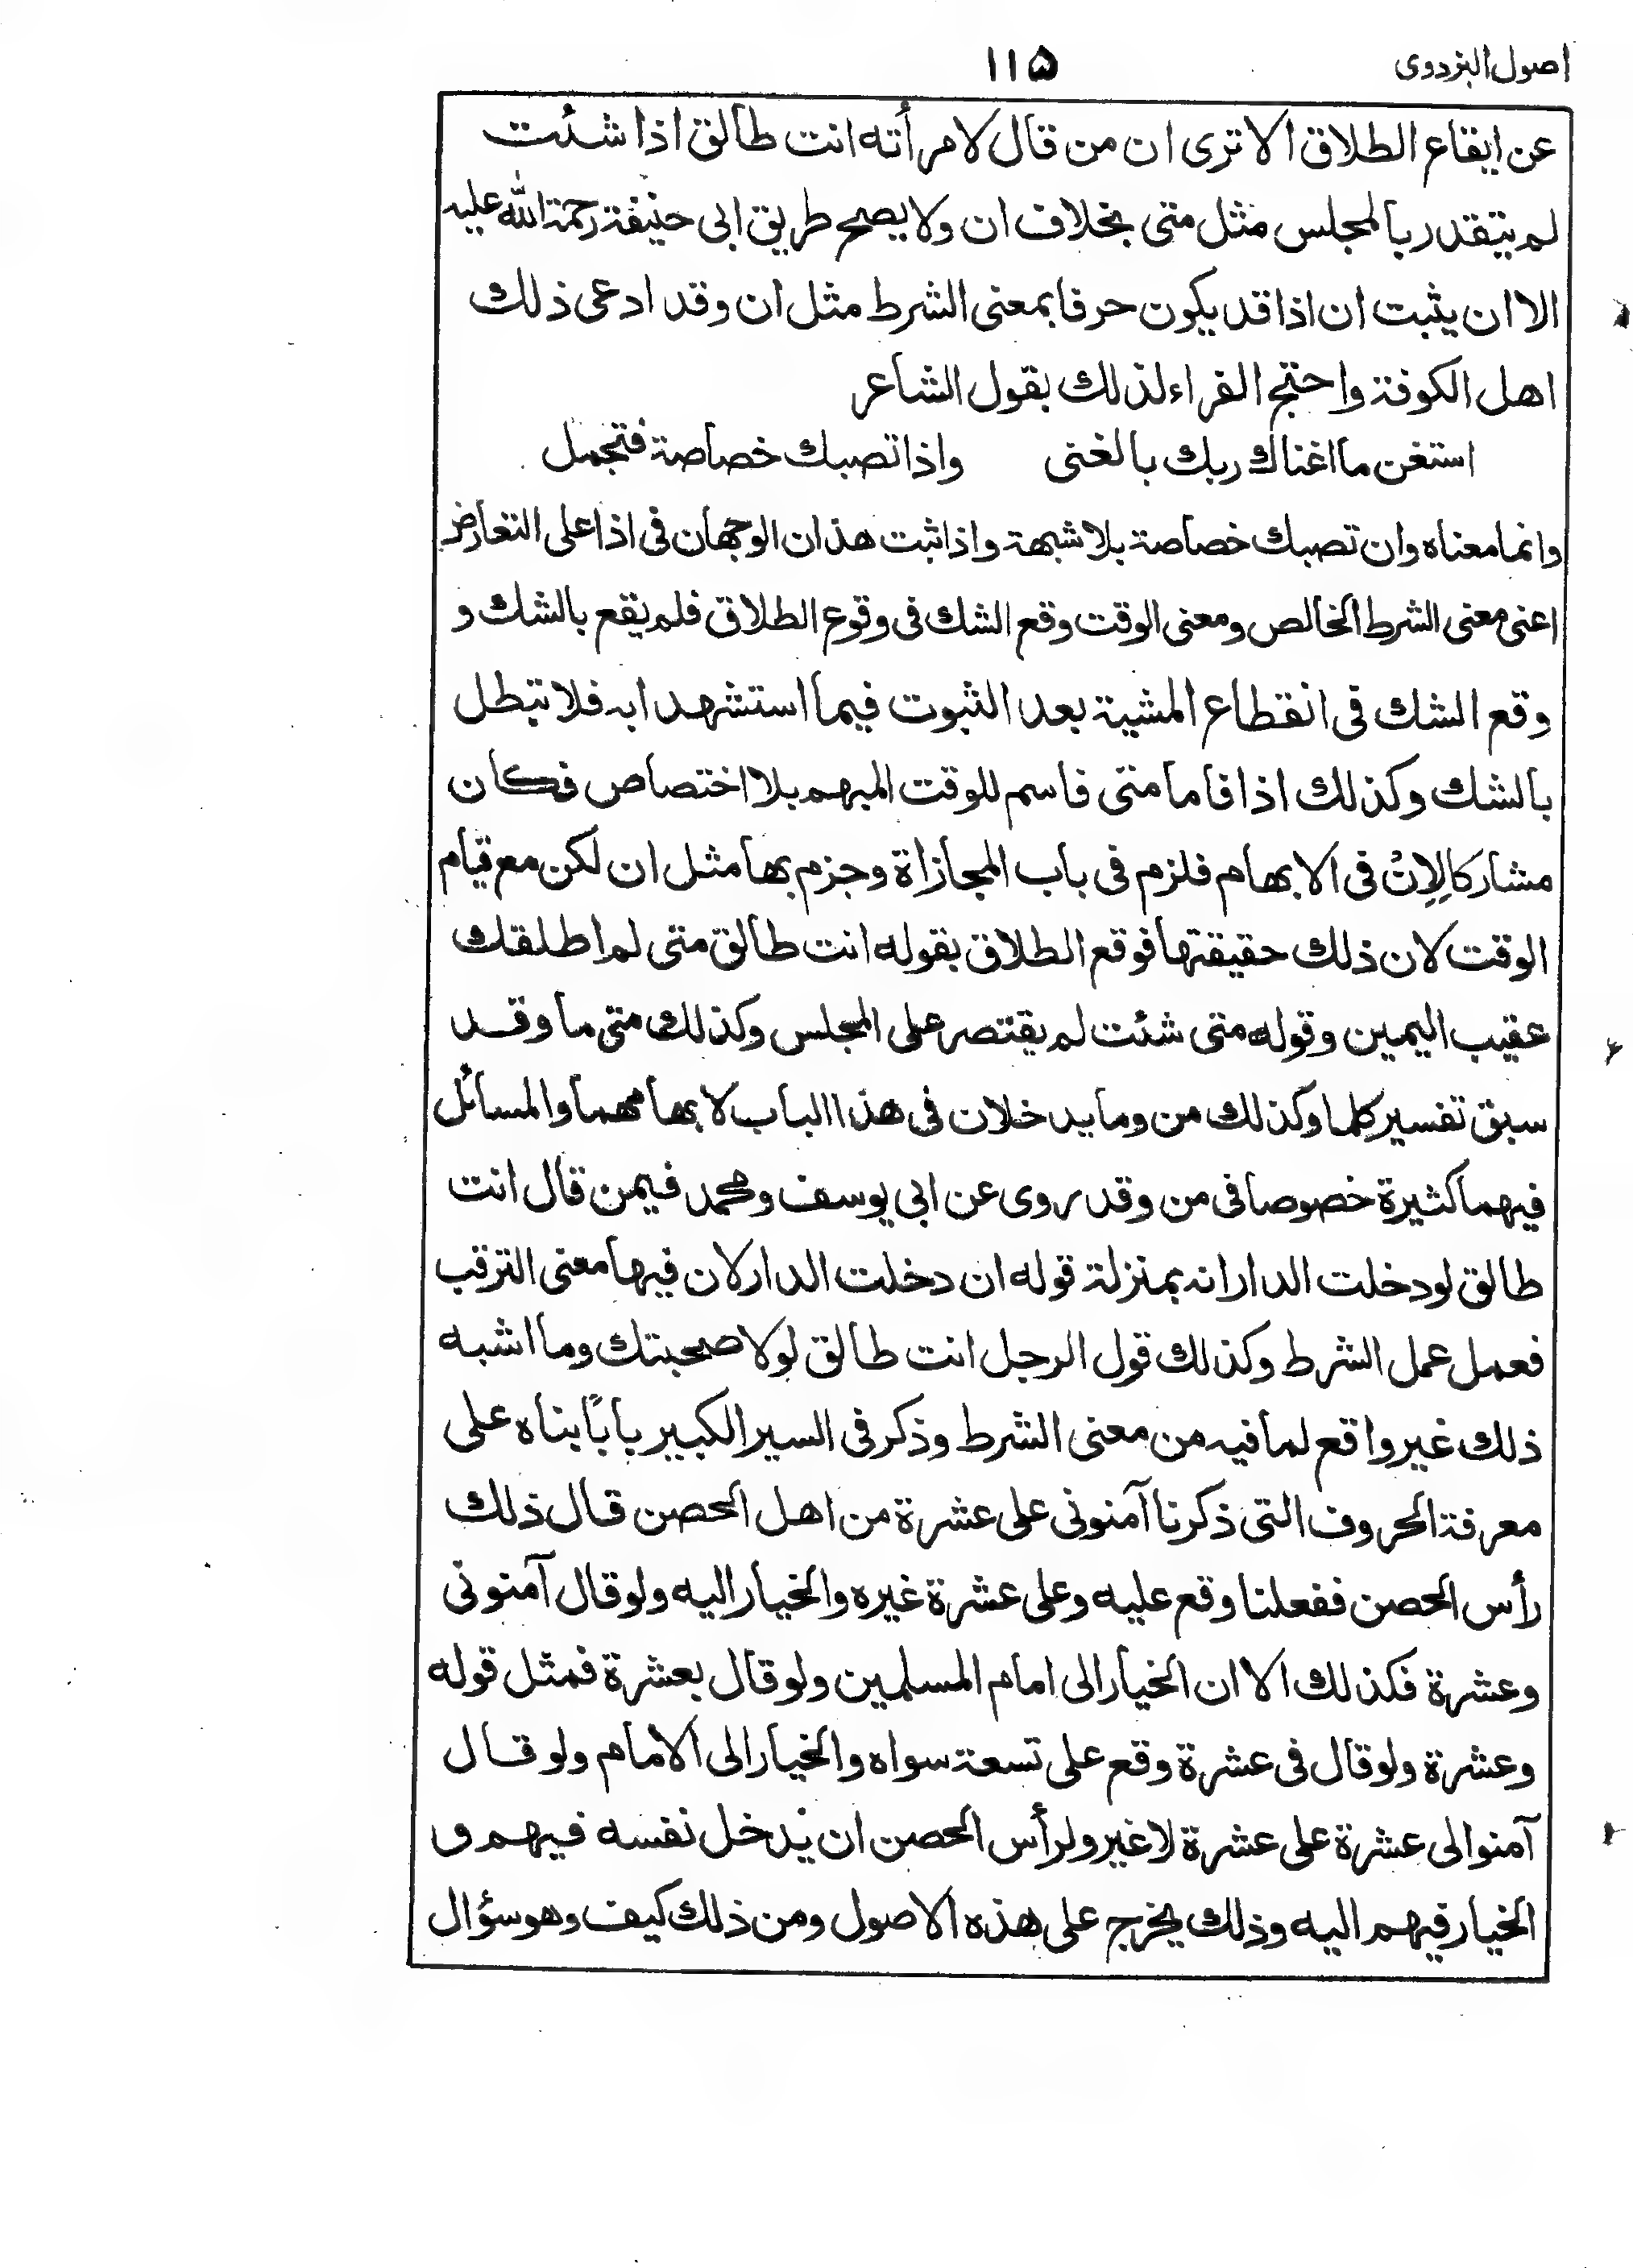 اصول البزدوی ١١۵
عن ايقاع الطلاق الا ترى ان من قال لامرأته انت طالق اذا شئت
لم يتقدر بالمجلس مثل متى بخلاف ان ولا يصح طريق ابى حنيفة رحمة الله عليه
الا ان يثبت ان اذا قد يكون حرفا بمعنى الشرط مثل ان وقد ادعى ذلك
اهل الكوفة واحتج الفراء لذلك بقول الشاعر
استغن ما اغناك ربك بالغنى واذا تصبك خصاصة فتجمل
وانما معناه وان تصبك خصاصة بلا شبهة واذا ثبت هذان الوجهان فى اذا على التعارض
اعنى معنى الشرط الخالص ومعنى الوقت وقع الشك فى وقوع الطلاق فلم يقع بالشك و
وقع الشك فى انقطاع المشية بعد الثبوت فيما استشهدا به فلا تبطل
بالشك وكذلك اذا فاما متى فاسم للوقت المبهم بلا اختصاص فكان
مشاركا لِاِنْ فى الابهام فلزم فى باب المجازاة وجزم بها مثل ان لكن مع قيام
الوقت لان ذلك حقيقتها فوقع الطلاق بقوله انت طالق متى لم اطلقك
عقيب اليمين وقوله متى شئت لم يقتصر على المجلس وكذلك متى ما وقد
سبق تفسير كلما وكذلك من وما يدخلان فى هذا الباب لابهامهما والمسائل
فيهما كثيرة خصوصا فى من وقد روى عن ابى يوسف ومحمد فيمن قال انت
طالق لو دخلت الدار انه بمنزلة قوله ان دخلت الدار لان فيها معنى الترقب
فعمل عمل الشرط وكذلك قول الرجل انت طالق لولا صحبتك وما اشبه
ذلك غير واقع لما فيه من معنى الشرط وذكر فى السير الكبير بابًا بناه على
معرفة الحروف التى ذكرنا آمنونى على عشرة من اهل الحصن قال ذلك
رأس الحصن ففعلنا وقع عليه وعلى عشرة غيره والخيار اليه ولو قال آمنونى
وعشرة فكذلك الا ان الخيار الى امام المسلمين ولو قال بعشرة فمثل قوله
وعشرة ولو قال فى عشرة وقع على تسعة سواه والخيار الى الامام ولو قال
آمنوا لى عشرة على عشرة لا غير ولرأس الحصن ان يدخل نفسه فيهم و
الخيار فيهم اليه وذلك يخرج على هذه الاصول ومن ذلك كيف وهو سؤال